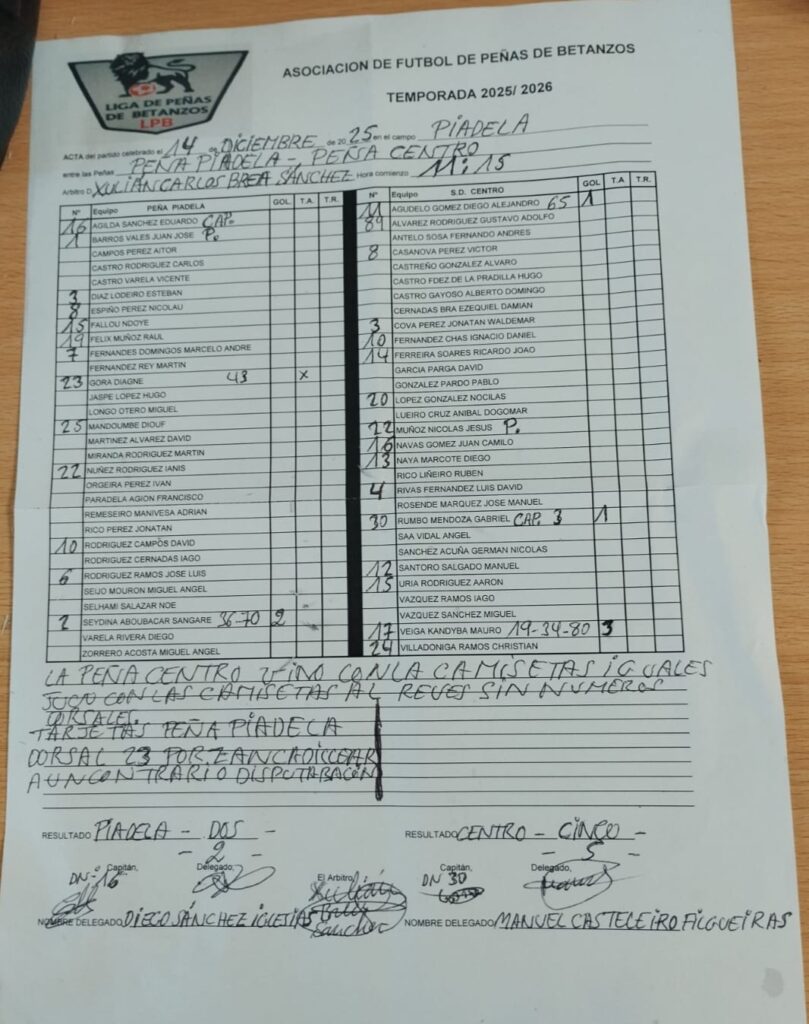 LIGA DE PEÑAS
DE BETANZOS
LPB
ASOCIACION DE FUTBOL DE PEÑAS DE BETANZOS
TEMPORADA 2025/ 2026
ACTA del partido celebrado el 14 de DICIEMBRE de 2025 en el campo PIADELA
entre las Peñas PEÑA PIADELA - PEÑA CENTRO
Arbitro D. XULIAN CARLOS BREA SÁNCHEZ Hora comienzo 11:15
Nº Equipo PEÑA PIADELA GOL T.A. T.R.
16 AGILDA SANCHEZ EDUARDO CAP.
1 BARROS VALES JUAN JOSE P.
CAMPOS PEREZ AITOR
CASTRO RODRIGUEZ CARLOS
CASTRO VARELA VICENTE
3 DIAZ LODEIRO ESTEBAN
8 ESPIÑO PEREZ NICOLAU
15 FALLOU NDOYE
19 FELIX MUÑOZ RAUL
7 FERNANDES DOMINGOS MARCELO ANDRE
FERNANDEZ REY MARTIN
23 GORA DIAGNE 43 X
JASPE LOPEZ HUGO
LONGO OTERO MIGUEL
25 MANDOUMBE DIOUF
MARTINEZ ALVAREZ DAVID
MIRANDA RODRIGUEZ MARTIN
22 NUÑEZ RODRIGUEZ IANIS
ORGEIRA PEREZ IVAN
PARADELA AGION FRANCISCO
REMESEIRO MANIVESA ADRIAN
RICO PEREZ JONATAN
10 RODRIGUEZ CAMPOS DAVID
RODRIGUEZ CERNADAS IAGO
6 RODRIGUEZ RAMOS JOSE LUIS
SEIJO MOURON MIGUEL ANGEL
SELHAMI SALAZAR NOE
2 SEYDINA ABOUBACAR SANGARE 36-70 2
VARELA RIVERA DIEGO
ZORRERO ACOSTA MIGUEL ANGEL
Nº Equipo S.D. CENTRO GOL T.A. T.R.
11 AGUDELO GOMEZ DIEGO ALEJANDRO 65 1
89 ALVAREZ RODRIGUEZ GUSTAVO ADOLFO
ANTELO SOSA FERNANDO ANDRES
8 CASANOVA PEREZ VICTOR
CASTREÑO GONZALEZ ALVARO
CASTRO FDEZ DE LA PRADILLA HUGO
CASTRO GAYOSO ALBERTO DOMINGO
CERNADAS BRA EZEQUIEL DAMIAN
3 COVA PEREZ JONATAN WALDEMAR
10 FERNANDEZ CHAS IGNACIO DANIEL
14 FERREIRA SOARES RICARDO JOAO
GARCIA PARGA DAVID
GONZALEZ PARDO PABLO
20 LOPEZ GONZALEZ NOCILAS
LUEIRO CRUZ ANIBAL DOGOMAR
22 MUÑOZ NICOLAS JESUS P.
16 NAVAS GOMEZ JUAN CAMILO
13 NAYA MARCOTE DIEGO
RICO LIÑEIRO RUBEN
4 RIVAS FERNANDEZ LUIS DAVID
ROSENDE MARQUEZ JOSE MANUEL
30 RUMBO MENDOZA GABRIEL CAP. 3 1
SAA VIDAL ANGEL
SANCHEZ ACUÑA GERMAN NICOLAS
12 SANTORO SALGADO MANUEL
15 URIA RODRIGUEZ AARON
VAZQUEZ RAMOS IAGO
VAZQUEZ SANCHEZ MIGUEL
17 VEIGA KANDYBA MAURO 19-34-80 3
24 VILLADONIGA RAMOS CHRISTIAN
LA PEÑA CENTRO VINO CON LA CAMISETAS IGUALES
JUGO CON LAS CAMISETAS AL REVES SIN NUMEROS
DORSALES.
TARJETAS PEÑA PIADELA
DORSAL 23 POR ZANCADILLEAR
A UN CONTRARIO DISPUTA BALÓN
RESULTADO PIADELA - DOS -
- 2 -
RESULTADO CENTRO - CINCO -
- 5 -
Capitán, Delegado, El Arbitro Capitán, Delegado,
DN-16 DN 30
Xulián
Sánchez
NOMBRE DELEGADO DIEGO SÁNCHEZ IGLESIAS
NOMBRE DELEGADO MANUEL CASTELEIRO FILGUEIRAS